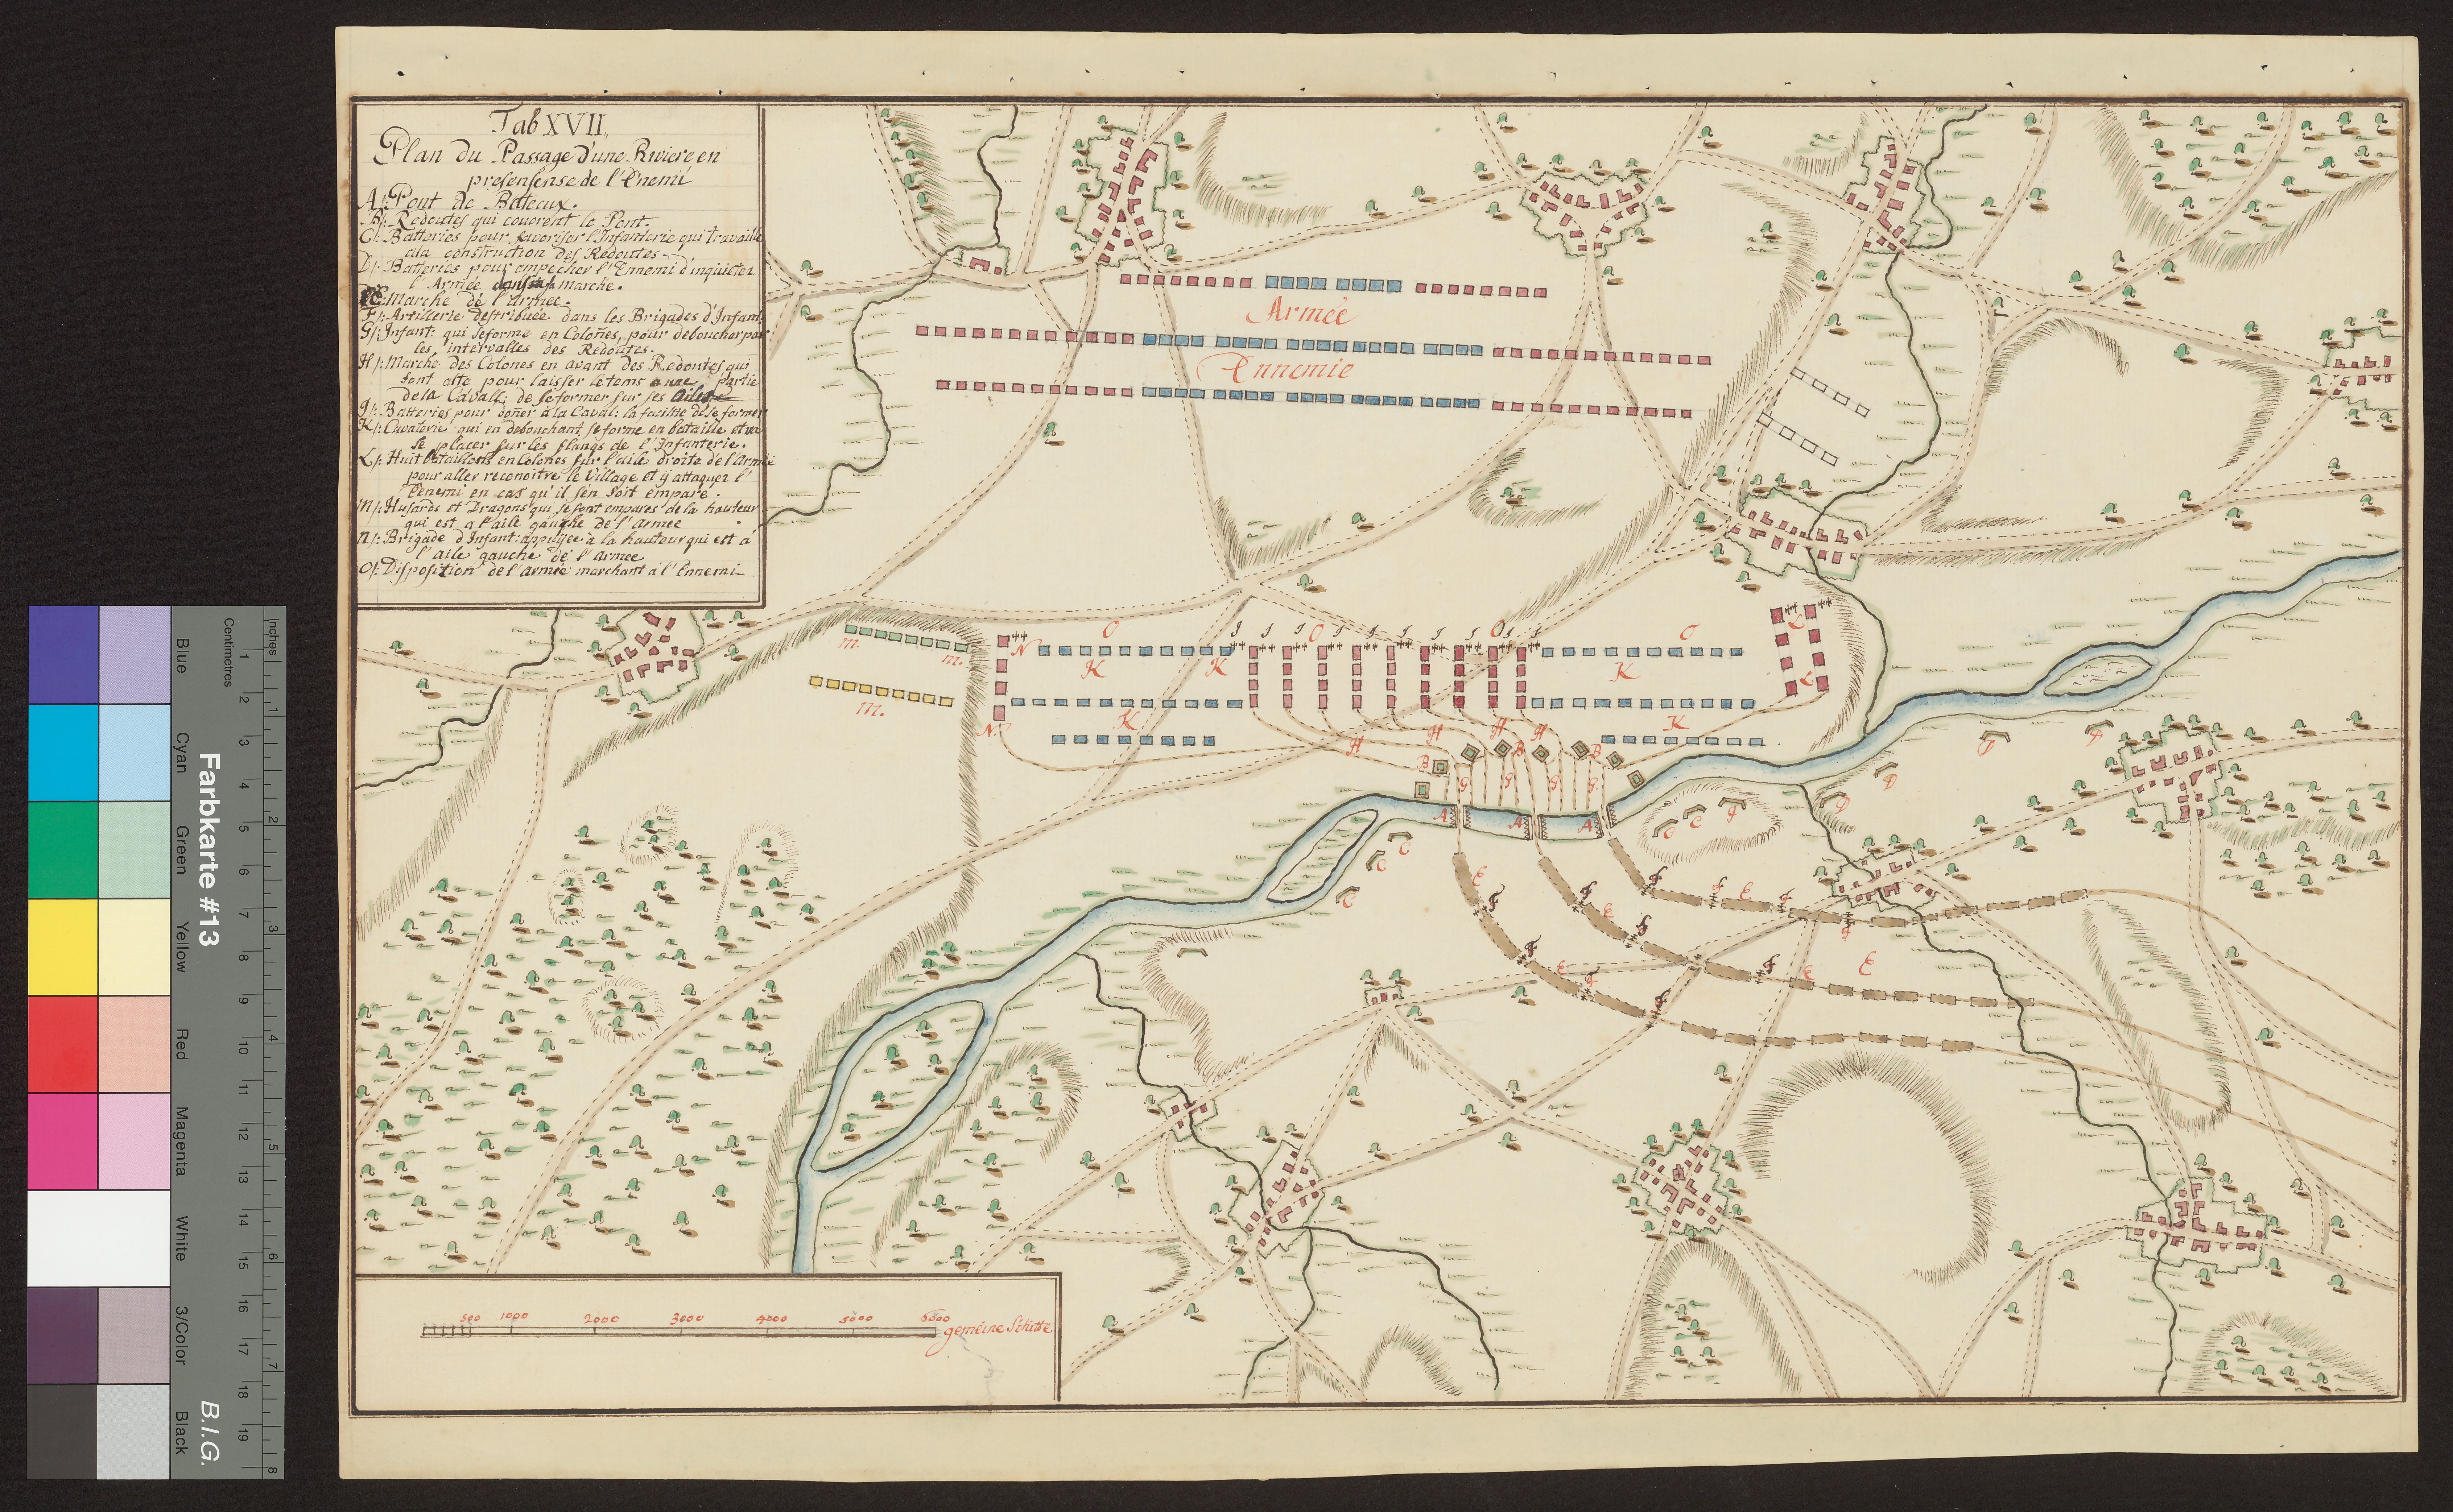 Tab XVII,,
Plan du Passage d'une Riviere en
presensense de l'Enemi
A/: Pont de Bateux.
B/: Redoutes qui couvrent le Pont.
C/: Batteries pour favoriser l'Infanterie qui travaille
ala construction des Redoutes
D/: Batteries pour empecher l'Ennemi d'inquieter
l'Armée marche.
E Marche de l'Armée.
F/: Artillerie destribuée dans les Brigades d'Infant:
G/: Infant: qui se forme en Colones, pour deboucher par
les intervalles des Redoutes.
H/: Marche des Colones en avant des Redoutes qui
font alte pour laisser le tems a une partie
de la Cavall: de se former sur ses ailes
J/: Batteries pour doñer à la Caval: la facilité de se former
K/: Cavalerie qui en debouchant se forme en bataille et va
se placer sur les flangs de l'Infanterie.
L/: Huit bataillons en Colones sur l'aile droite de l'Armée
pour aller reconoitre le Village et y attaquer l'
Enemi en cas qu'il s'en soit emparé.
M/: Husards et Dragons qui se sont emparés de la hauteur
qui est a l'aile gauche de l'Armée
N/: Brigade d'Infant: appuijée à la hauteur qui est à
l'aile gauche de l'armée
O/: Disposition de l'armée marchant à l'Ennemi
Armée
Ennemie
O O O O
J J J J J J J J J
N L
m. m. K K K L
m. K K
N
H H H H
B B B
G G G G
A A A
D D D D
C C C C C
E E E E E E
F F F F F F F F
500 1000 2000 3000 4000 5000 6000
gemeine Schitte
Blue
Cyan
Green
Yellow
Red
Magenta
White
3/Color
Black
Farbkarte #13
B.I.G.
Centimetres
1 2 3 4 5 6 7 8 9 10 11 12 13 14 15 16 17 18 19
Inches
1 2 3 4 5 6 7 8